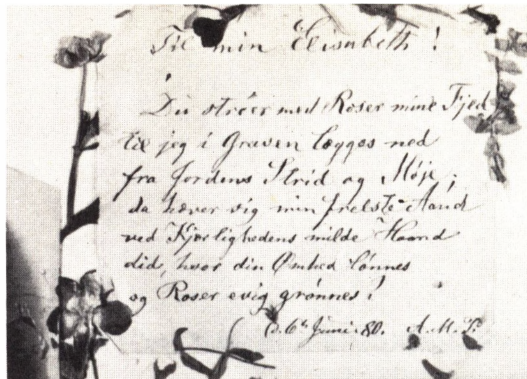 Til min Elisabeth!
Du strøer med Roser mine Fjed
til jeg i Graven lægges ned
fra Jordens Strid og Møje;
da hæver sig min frelste Aand
ved Kjærlighedens milde Haand
did, hvor din Ømhed lønnes
og Roser evig grønnes!
d. 6te Juni. 80. A. M. T.